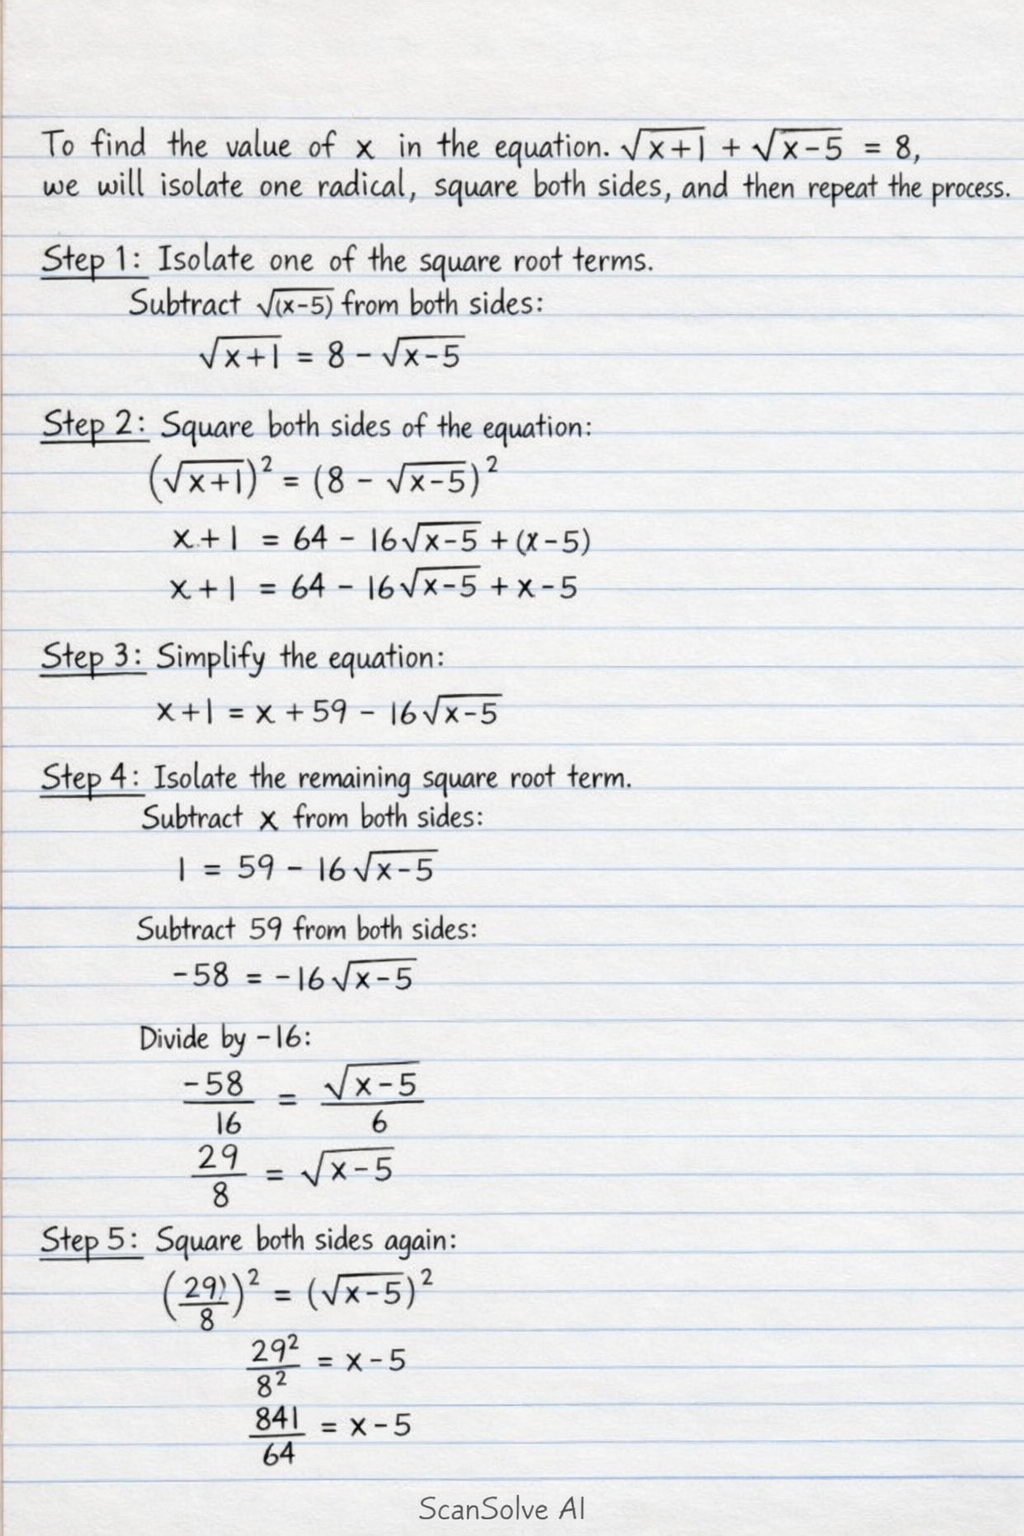 To find the value of x in the equation. √x+1 + √x-5 = 8,
we will isolate one radical, square both sides, and then repeat the process.
Step 1: Isolate one of the square root terms.
Subtract √(x-5) from both sides:
√x+1 = 8 - √x-5
Step 2: Square both sides of the equation:
(√x+1)² = (8 - √x-5)²
x+1 = 64 - 16√x-5 + (x-5)
x+1 = 64 - 16√x-5 + x-5
Step 3: Simplify the equation:
x+1 = x + 59 - 16√x-5
Step 4: Isolate the remaining square root term.
Subtract x from both sides:
1 = 59 - 16√x-5
Subtract 59 from both sides:
-58 = -16√x-5
Divide by -16:
-58/16 = √x-5/6
29/8 = √x-5
Step 5: Square both sides again:
(29)/8)² = (√x-5)²
29²/8² = x-5
841/64 = x-5
ScanSolve AI